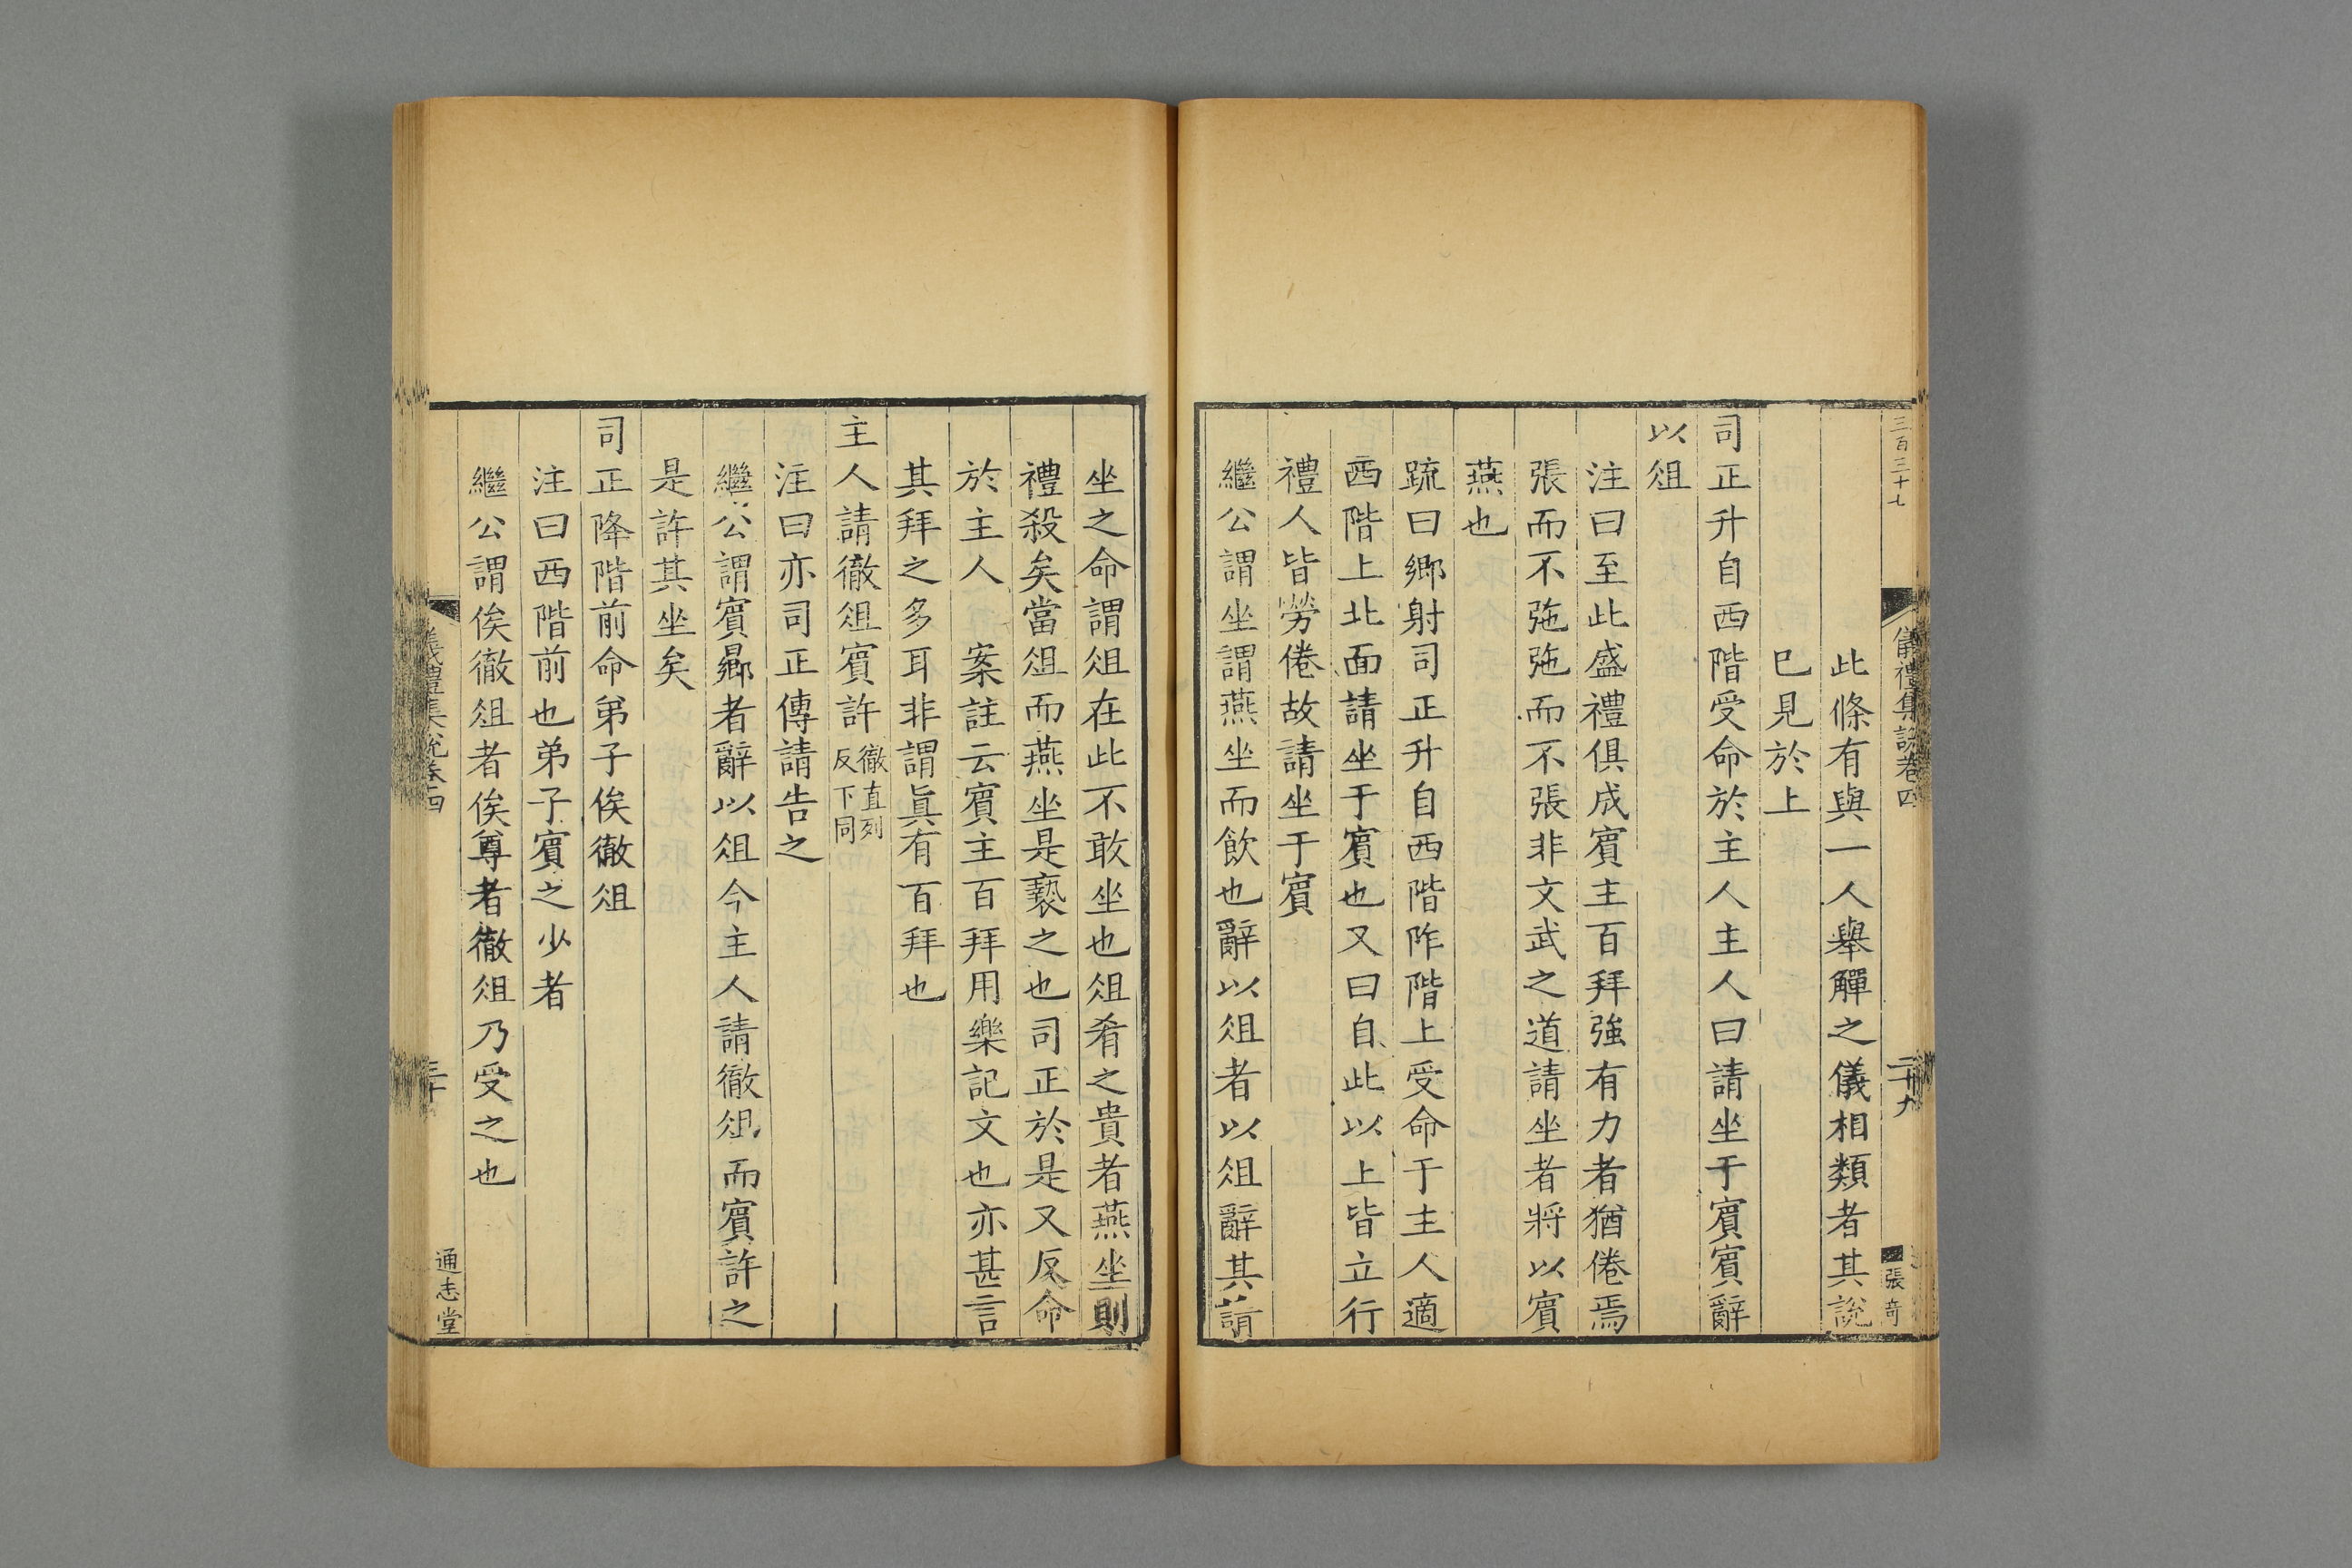 三百三十七
儀禮集說卷四
二十九
張奇
此條有與一人舉觶之儀相類者其說
已見於上
司正升自西階受命於主人主人曰請坐于賓賓辭
以俎
注曰至此盛禮俱成賓主百拜強有力者猶倦焉
張而不弛弛而不張非文武之道請坐者將以賓
燕也
疏曰鄉射司正升自西階阼階上受命于主人適
西階上北面請坐于賓也又曰自此以上皆立行
禮人皆勞倦故請坐于賓
繼公謂坐謂燕坐而飲也辭以俎者以俎辭其請
坐之命謂俎在此不敢坐也俎肴之貴者燕坐則
禮殺矣當俎而燕坐是褻之也司正於是又反命
於主人 案註云賓主百拜用樂記文也亦甚言
其拜之多耳非謂眞有百拜也
主人請徹俎賓許徹直列反下同
注曰亦司正傳請告之
繼公謂賓曏者辭以俎今主人請徹俎而賓許之
是許其坐矣
司正降階前命弟子俟徹俎
注曰西階前也弟子賓之少者
繼公謂俟徹俎者俟尊者徹俎乃受之也
儀禮集說卷四
三十
通志堂